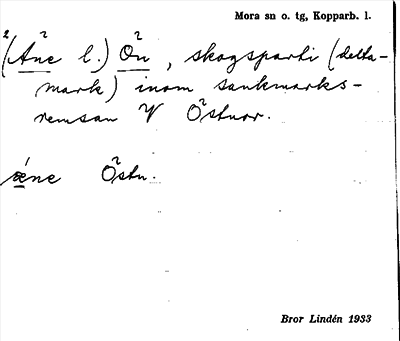 Mora sn o. tg, Kopparb. l.
2(Åne l.) Ön, skogsparti (delta-
mark) inom sankmarks-
remsan V Östnor.
æ̀ne Östn.
Bror Lindén 1933